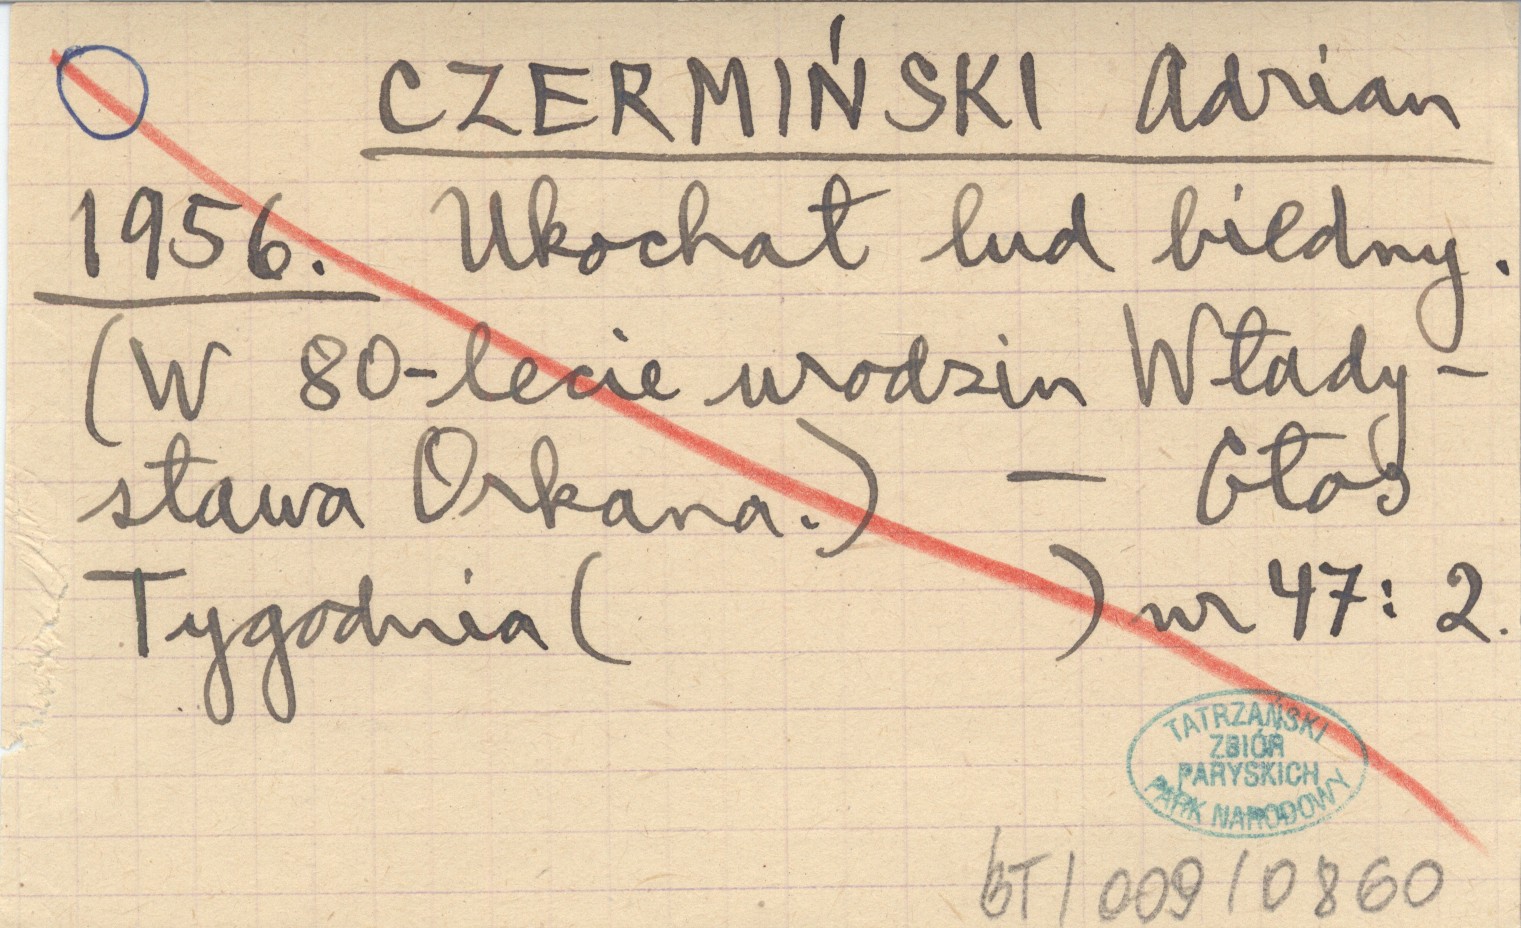 CZERMIŃSKI Adrian
1956. Ukochał lud biedny.
(W 80-lecie urodzin Włady-
sława Orkana.) — Głos
Tygodnia ( ) nr 47: 2.
TATRZAŃSKI
ZBIÓR
PARYSKICH
PARK NARODOWY
BT/009/0860